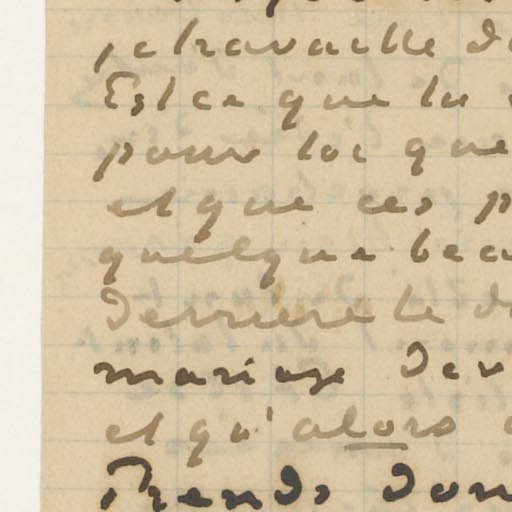 je travaille d
Est ce que tu
pour toi que
et que ces p
quelque bea
derriere le d
mariage dev
et qu'alors
Prends don